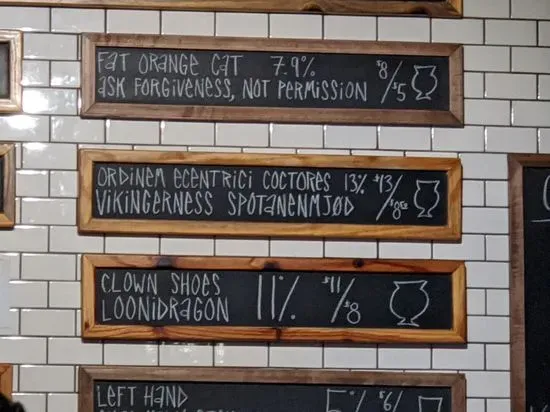 FAT ORANGE CAT 7.9% $8/$5
ASK FORGIVENESS, NOT PERMISSION
ORDINEM ECENTRICI COCTORES 13% $13/$8
VIKINGERNESS SPOTANENMJØD
CLOWN SHOES 11% $11/$8
LOONIDRAGON
LEFT HAND